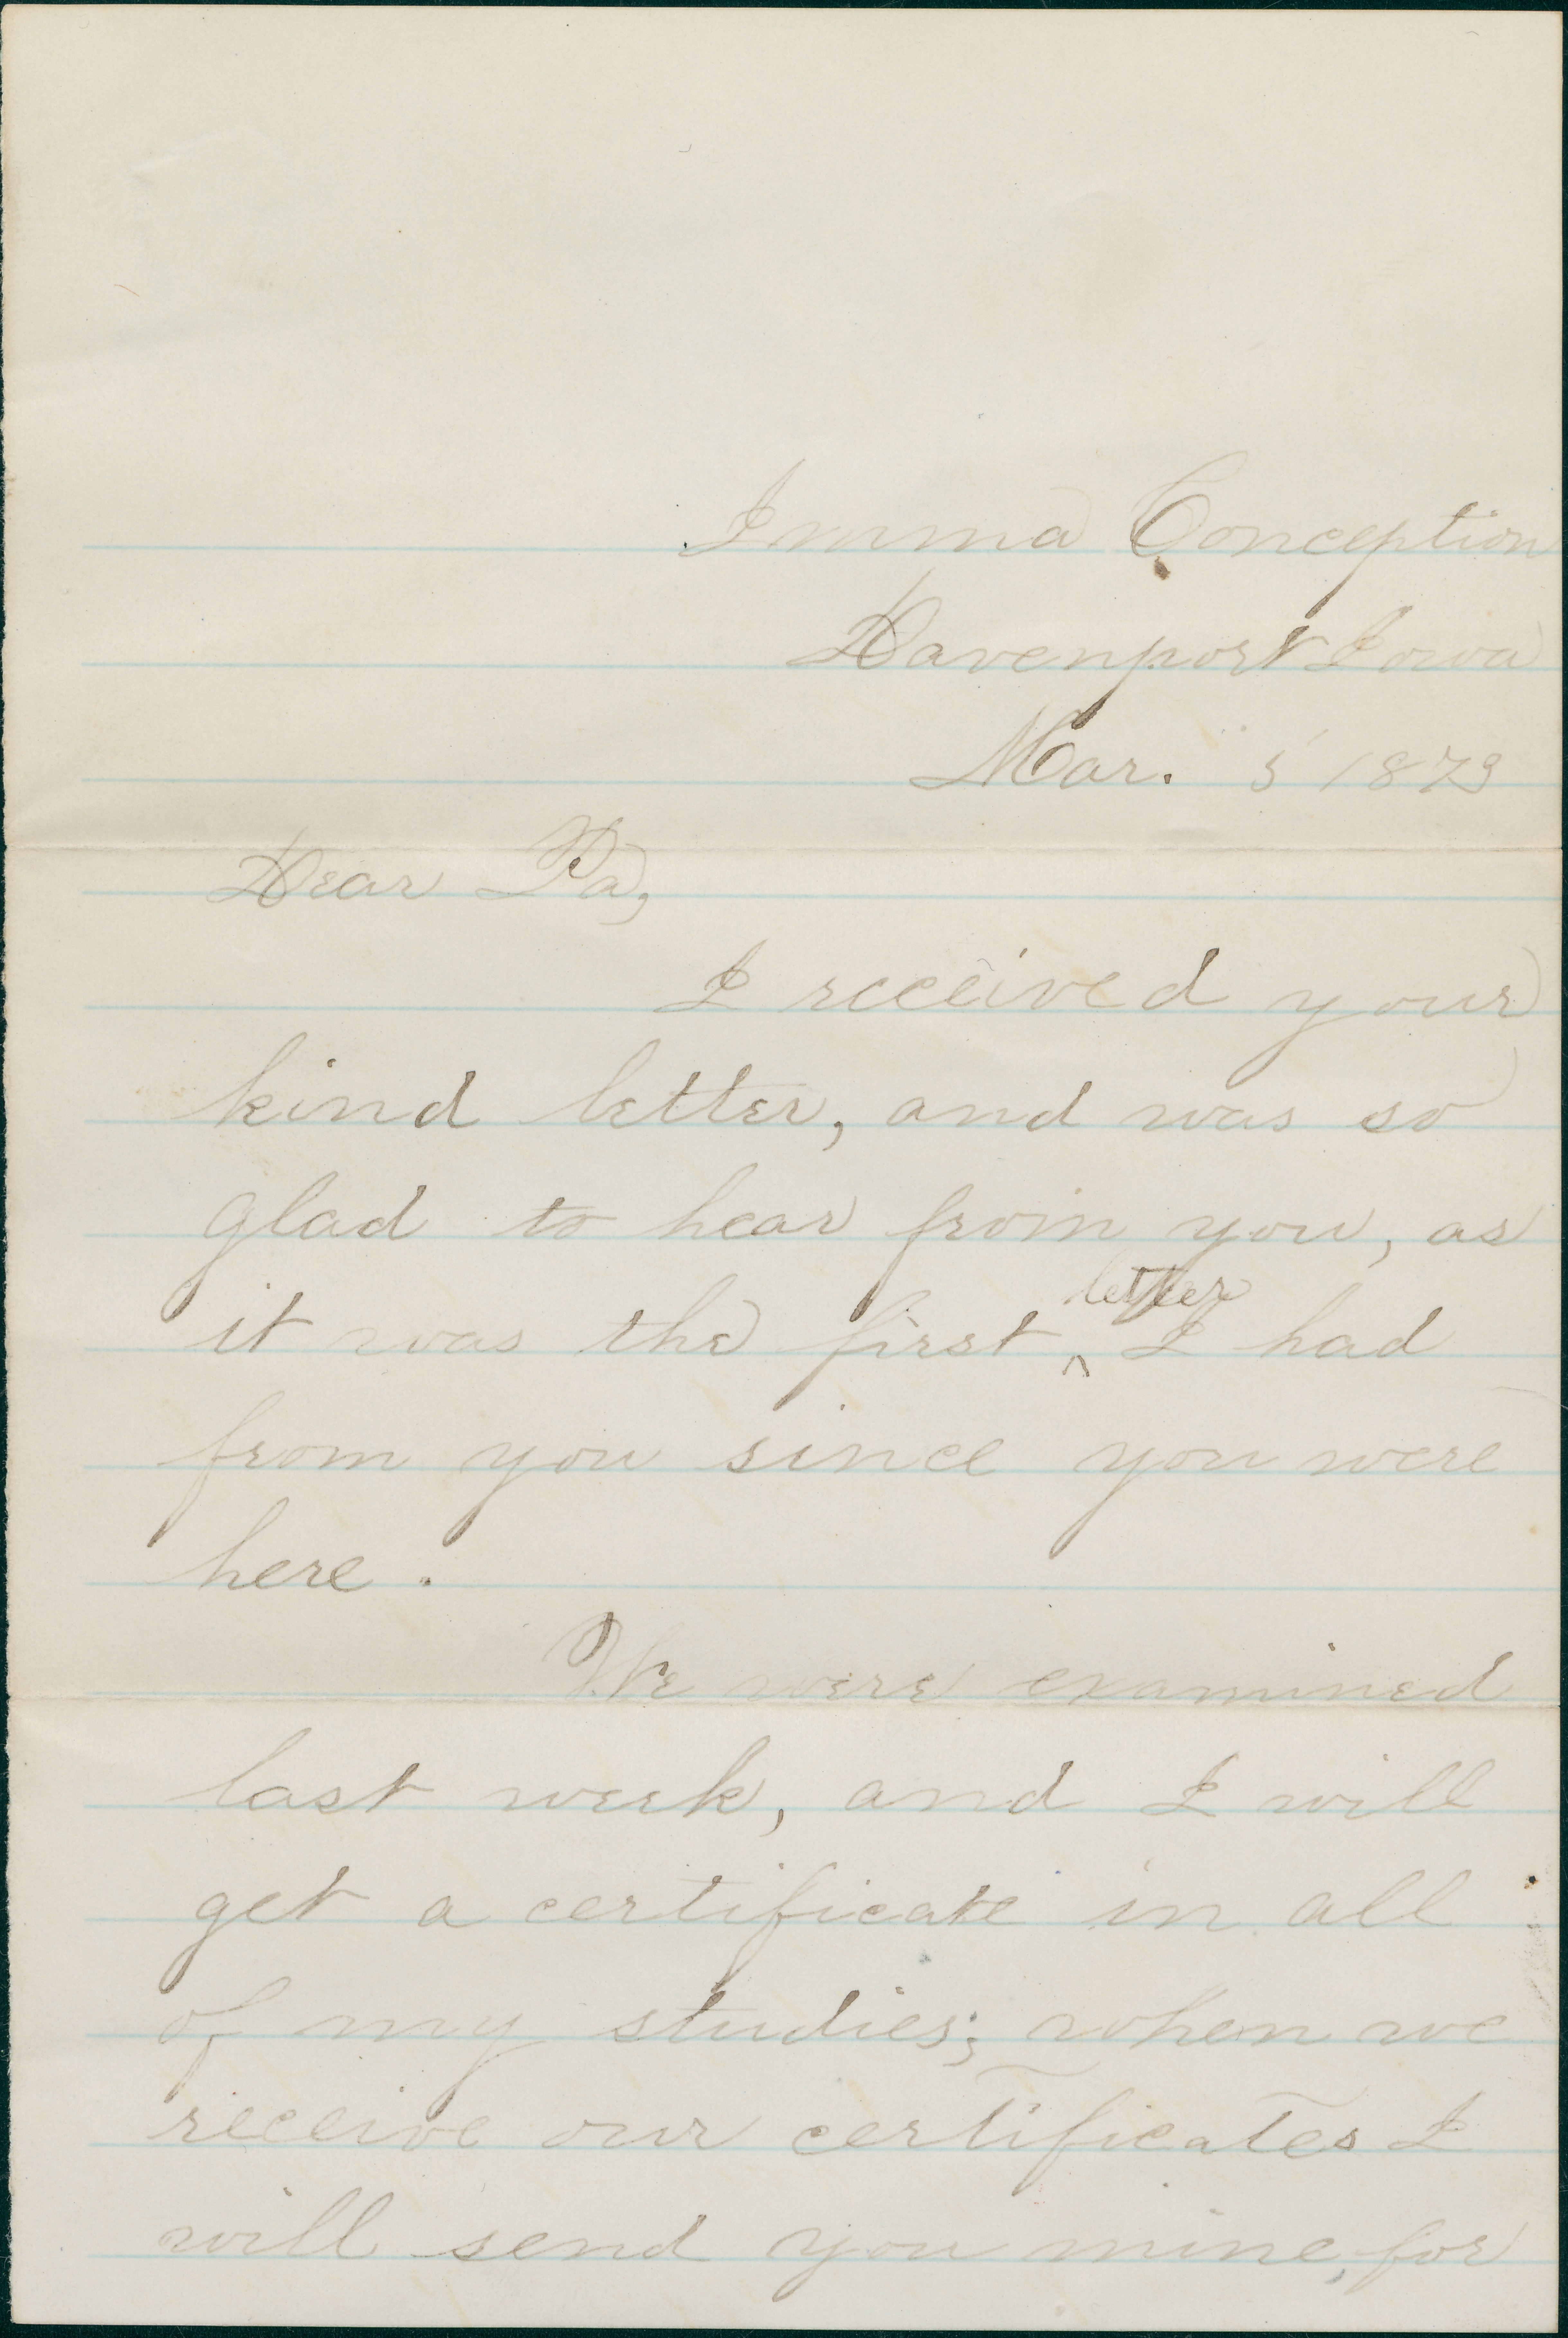 Imma Conception
Davenport Iowa
Mar. 5 1879
Dear Pa,
I received your
kind letter, and was so
glad to hear from you, as
it was the first ^ letter I had
from you since you were
here.
We were examined
last week, and I will
get a certificate in all
of my studies; when we
receive our certificates I
will send you mine, for